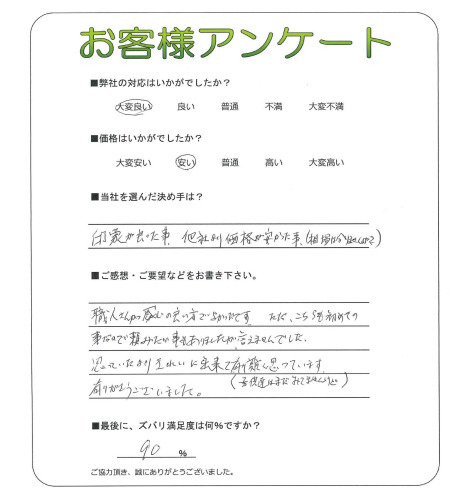 お客様アンケート
■弊社の対応はいかがでしたか？
大変良い 良い 普通 不満 大変不満
■価格はいかがでしたか？
大変安い 安い 普通 高い 大変高い
■当社を選んだ決め手は？
印象が良った事 他社より価格が安かた事
■ご感想・ご要望などをお書き下さい。
職人さんも感じの良い方でよかったです。ただ、こちらも初めての
事なので頼みたい事もありましたが言えませんでした。
思っていたよりきれいに出来て有り難く思っています。
有りがとうございました。
■最後に、ズバリ満足度は何％ですか？
90 %
ご協力頂き、誠にありがとうございました。